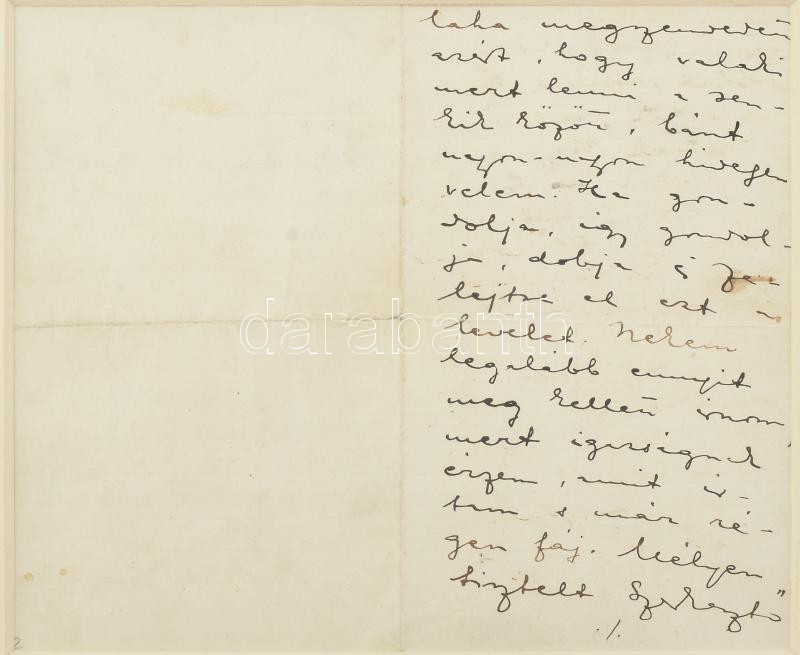 laha megszenvedett
azért, hogy valaki
mert lenni a sen-
kik között, bánt
nagyon-nagyon hidegen
velem. Ha gon-
dolja, így gondol-
ja, dobja s fe-
lejtse el ezt a
levelet. Nekem
legalább ennyit
meg kellett irnom,
mert igazságnak
érzem, amit ir-
tam s már ré-
gen fáj. Mélyen
tisztelt Szerkesztő
./.
darabanth
2